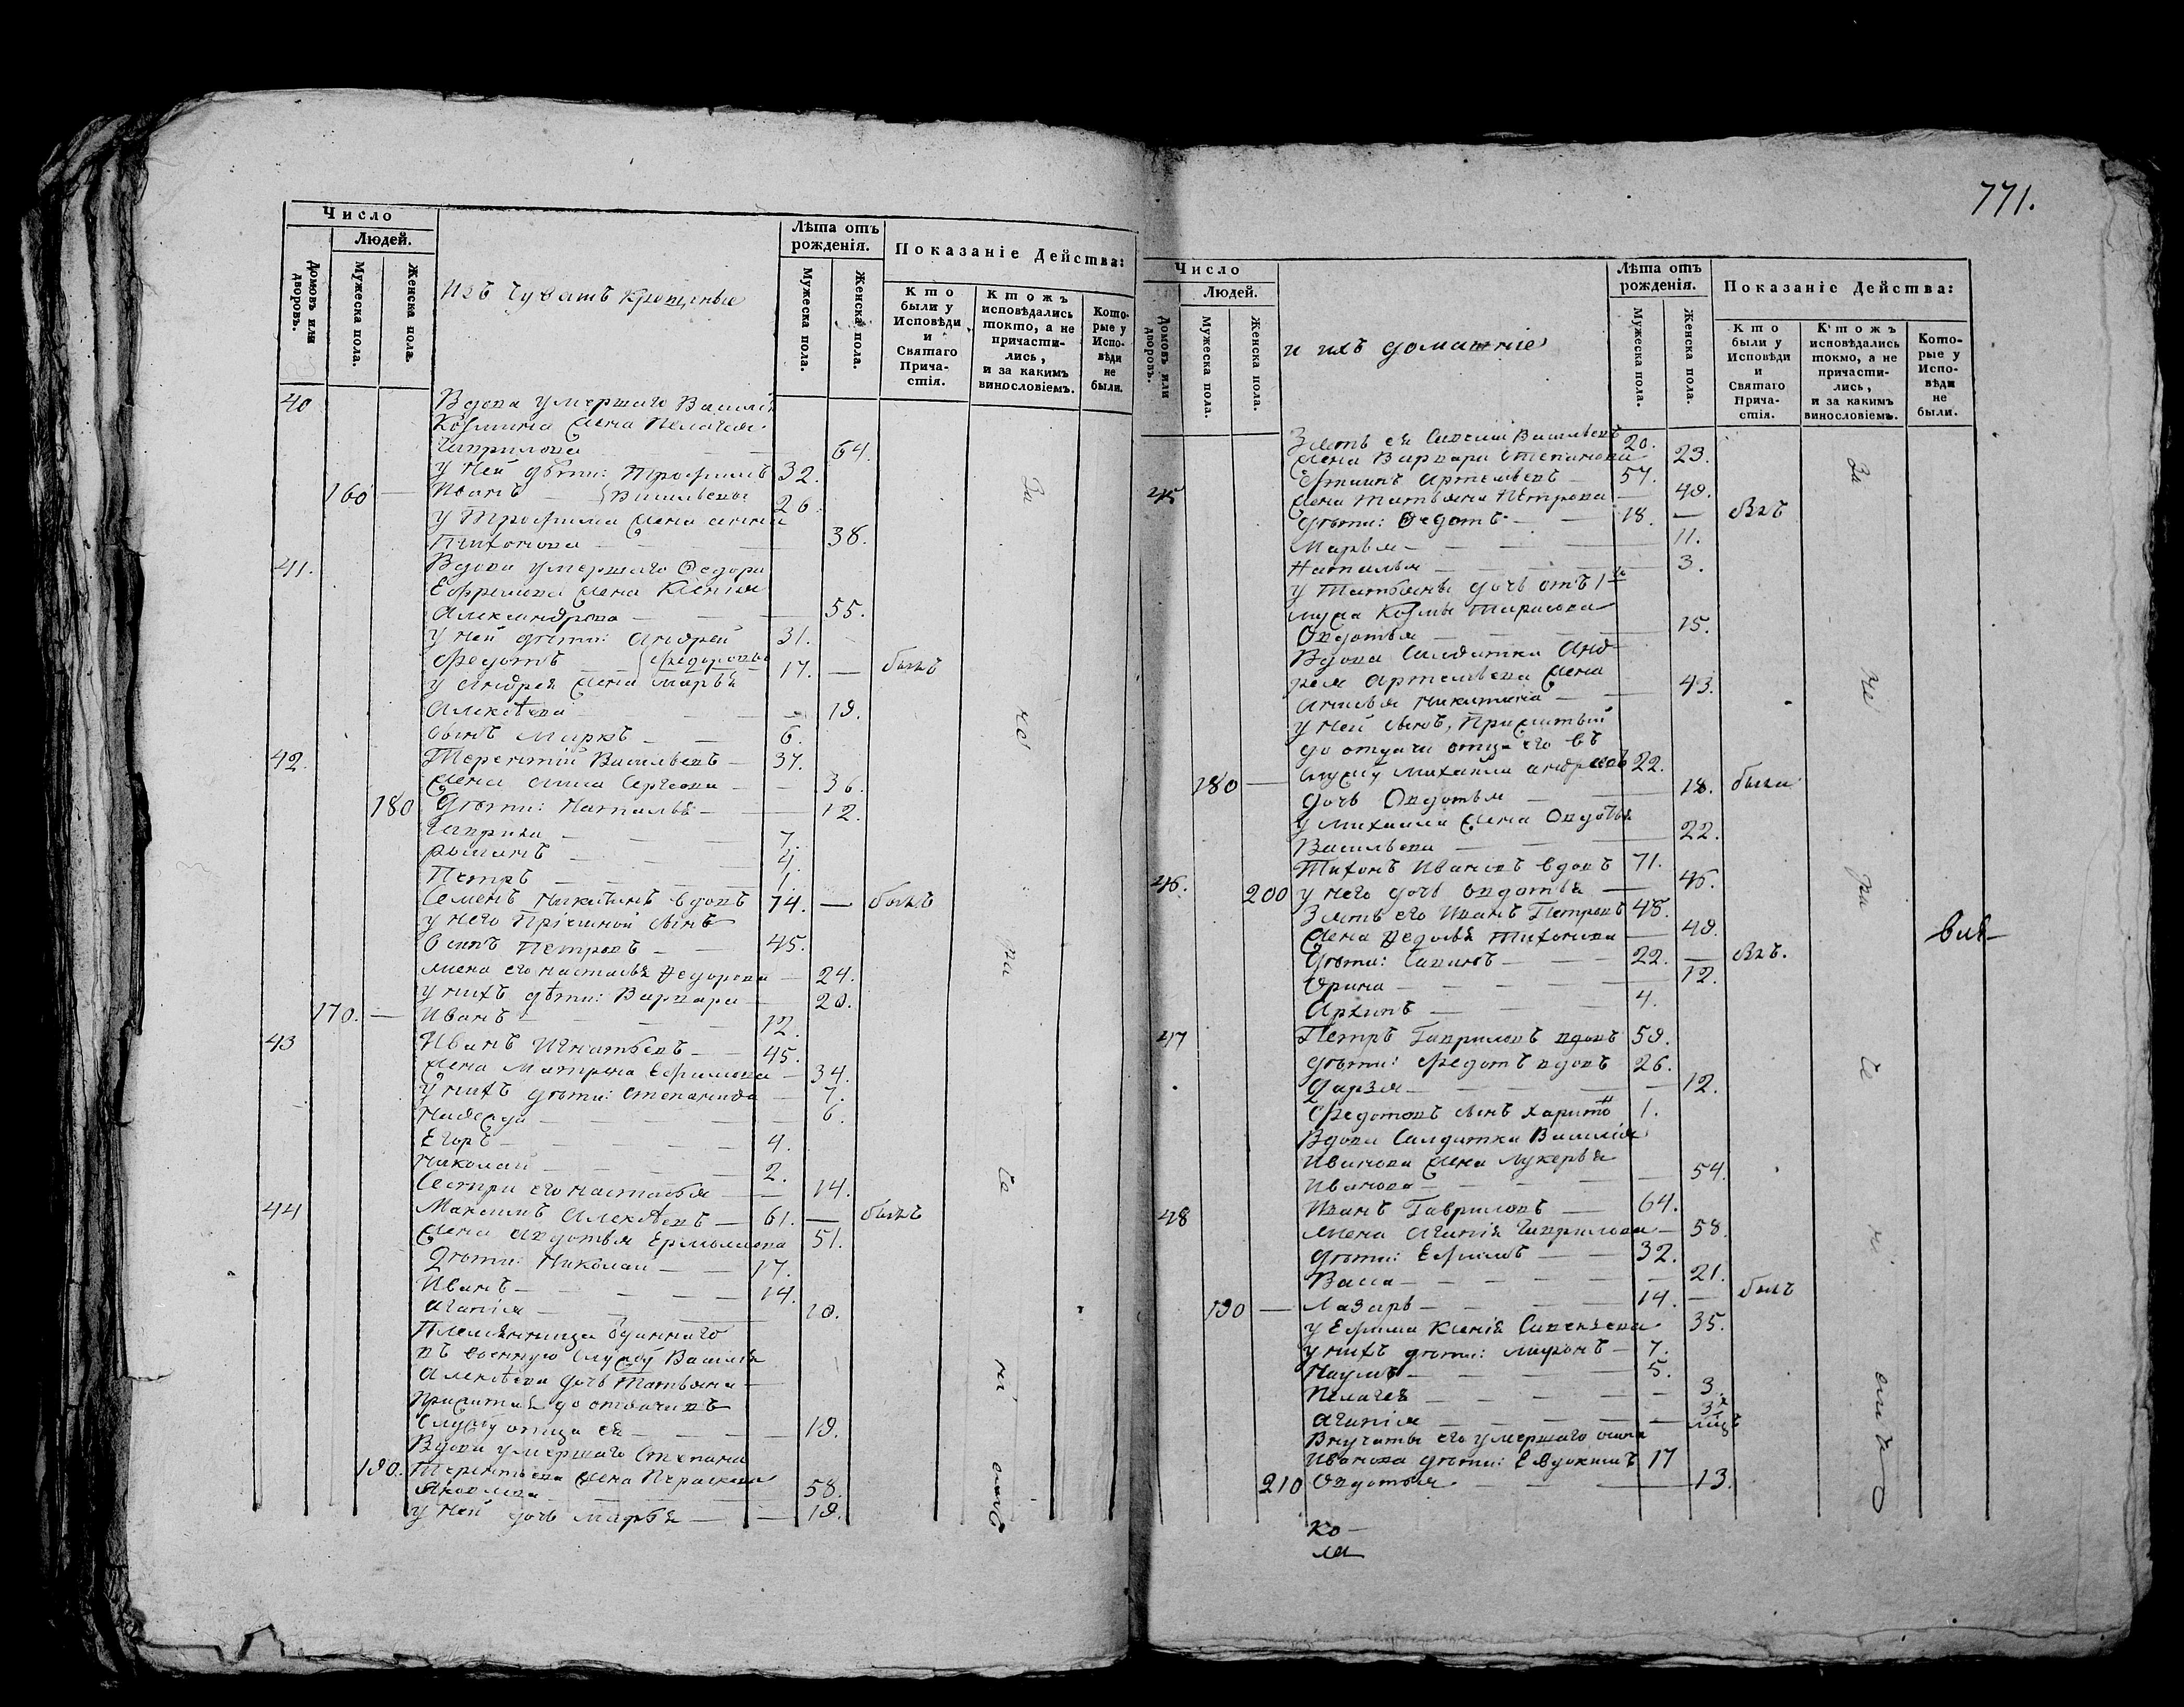 Число
Людей.
Домовъ или дворовъ.
Мужеска пола.
Женска пола.
Изъ Чувашъ Крещеные
Лѣта отъ рожденія.
Мужеска пола.
Женска пола.
Показаніе Действа:
Кто были у Исповѣди и Святаго Прича-стія.
Ктожъ исповѣдались токто, а не причасти-лись, и за какимъ винословіемъ.
Кото-рые у Испо-вѣди не были.
40 Вдова умершаго Василія
Козмина жена Пелагея
Гаврилова — — 64.
у ней дѣти: Трофимъ 32.
160 — Иванъ — Васильевы 26
у Трофима жена Анна
Тихонова — — 38.
41. Вдова умершаго Ѳедора
Ефремова жена Ксенія
Александрова — — 55.
у ней дѣти: Андрей 31.
Федотъ — Федоровы 17. — былъ
у Андрея жена Марья
Алексѣева — — 19.
сынъ Маркъ — — 6.
42. Терентій Васильевъ — 37.
жена Анна Сергеева — — 36.
180 Дѣти: Наталья — — 12.
Гаврила — — 7.
Романъ — — 4.
Петръ — — 1.
Семенъ Никитинъ вдовъ 74. — былъ
у него Пріемной сынъ
Осипъ Петровъ — — 45.
жена его Настасья Ѳедорова — 24.
у нихъ дѣти: Варвара — 20.
170. — Иванъ — — 12.
43 Иванъ Игнатьевъ — — 45.
жена Матрена Ефимова — 34.
у нихъ дѣти: Степанида — 7.
Надежда — — 6.
Егоръ — — 4.
Николай — — 2.
Сестра его Настасья — — 14.
44 Максимъ Алексѣевъ — 61. — былъ
жена Авдотья Ермолаева 51.
Дѣти: Николай — — 17.
Иванъ — — 14.
Агапія — — 10.
Племянница отданнаго
въ военную службу Василія
Алексѣева дочь Татьяна —
Прижитая до отдачи въ
службу отца ея — — 19.
Вдова умершаго Степана
190. Терентьева жена Параскева
Яковлева — — 58.
у ней дочь Марья — — 19.
За не ра че ні емъ
771.
Число
Людей.
Домовъ или дворовъ.
Мужеска пола.
Женска пола.
и ихъ домашніе
Лѣта отъ рожденія.
Мужеска пола.
Женска пола.
Показаніе Действа:
Кто были у Исповѣди и Святаго Прича-стія.
Ктожъ исповѣдались токмо, а не причасти-лись, и за какимъ винословіемъ.
Кото-рые у Испо-вѣди не были.
Зять ея Савелій Васильевъ 20.
жена Варвара Степанова 23.
45 Ермилъ Артемьевъ — 57.
жена Татьяна Петрова — 49.
дѣти: Ѳедотъ — — 18. — былъ
Марья — — 11.
Наталья — — 3.
у Татьяны дочь отъ 1го
мужа Козмы Тарасова
Овдотья — — 15.
Вдова Салдатка Анд-
рея Артемьева жена
Анисья Никитина — — 43.
у ней сынъ, Прижитый
до отдачи отца его въ
180 — службу Михаила Андреевъ 22.
дочь Овдотья — — 18. были
у Михаила жена Овдотья
Васильева — — 22.
46. Тихонъ Ивановъ вдовъ 71.
200 у него дочь Овдотья — 46.
Зять его Иванъ Петровъ 48.
жена Ѳедосья Тихонова — 49.
Дѣти: Савинъ — — 22. — былъ.
Орина — — 12.
Архипъ — — 4.
47 Петръ Гавриловъ вдовъ 59.
дѣти: Федотъ вдовъ 26.
Дарья — — 12.
Федотовъ сынъ Харитонъ 1.
Вдова Салдатка Василія
Иванова жена Лукерья
Иванова — — 54.
48 Иванъ Гавриловъ — 64.
жена Агапія Гаврилова — 58.
дѣти: Ефимъ — — 32.
Васса — — 21.
190 — Лазарь — — 14. — былъ
у Ефима Ксенія Савельева 35.
у нихъ дѣти: Миронъ — 7.
Наумъ — — 5.
Пелагея — — 3.
Агапія — — 3х мцъ
Внучаты его умершаго сына
Иванова дѣти: Евдокимъ 17
210 Овдотья — — 13.
За не ра че ні емъ